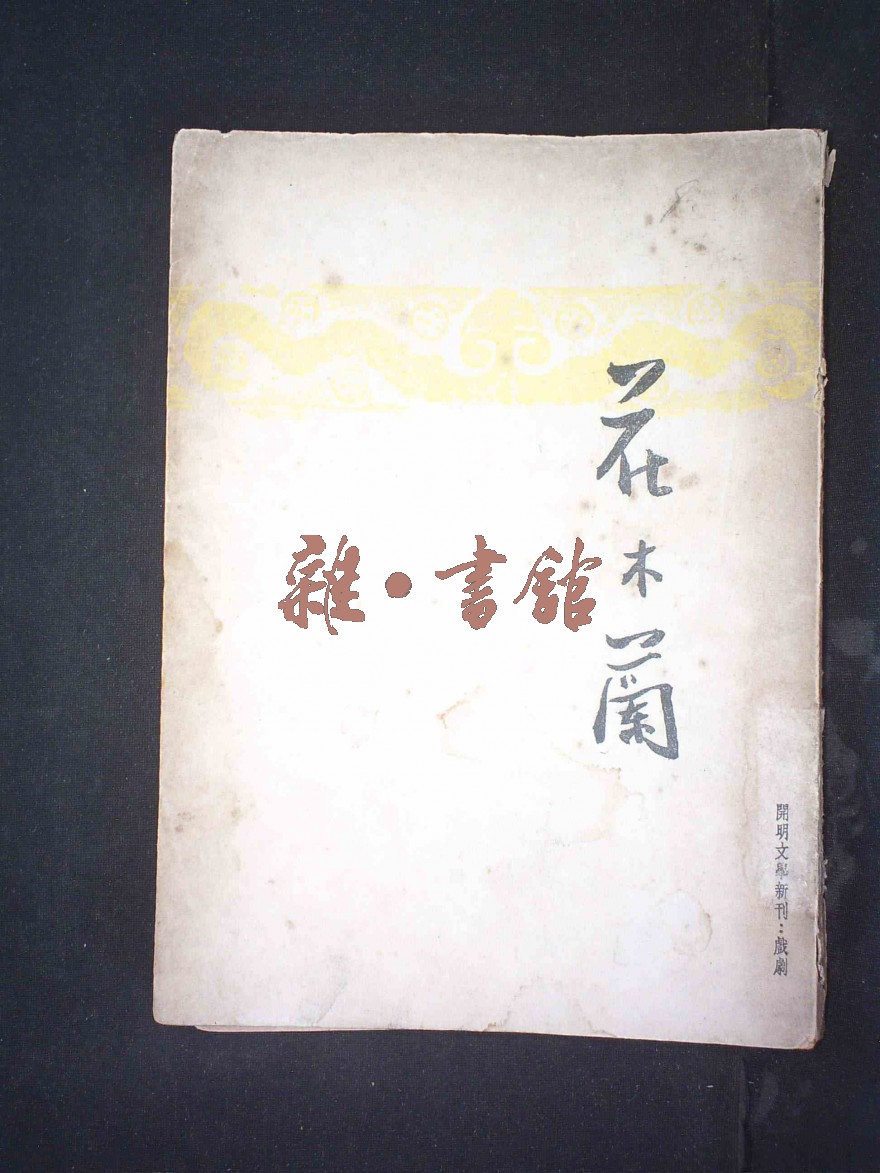 花木蘭
雜·書館
開明文學新刊：戲劇